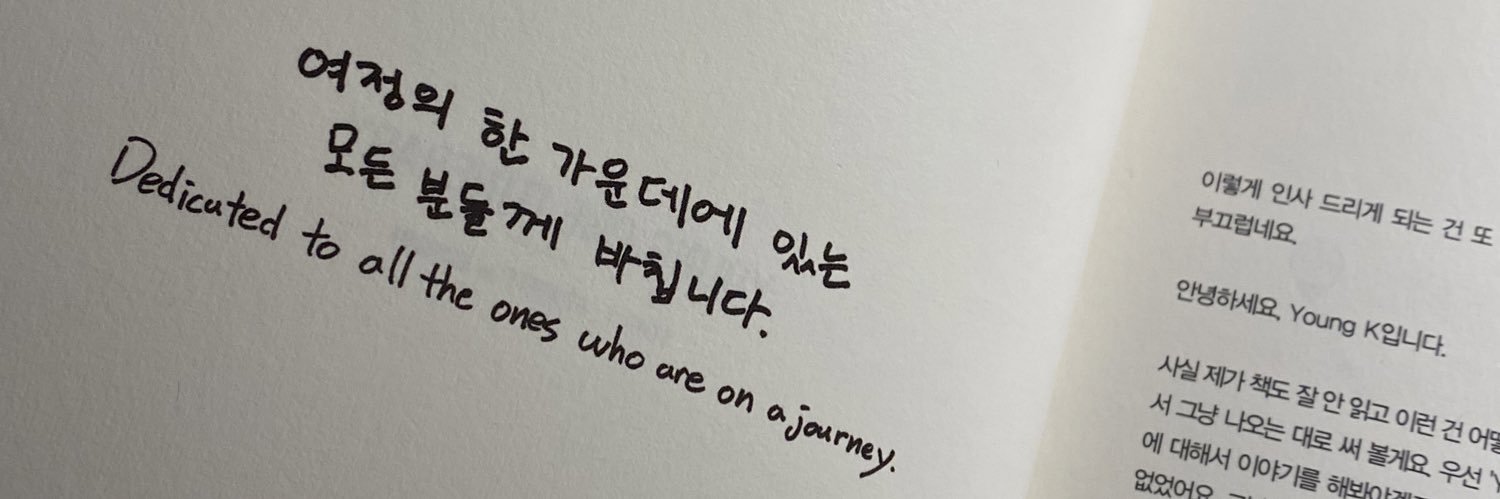 여정의 한 가운데에 있는
모든 분들께 바칩니다.
Dedicated to all the ones who are on a journey.
이렇게 인사 드리게 되는 건 또
부끄럽네요.
안녕하세요, Young K입니다.
사실 제가 책도 잘 안 읽고 이런 건
서 그냥 나오는 대로 써 볼게요. 우선
에 대해서 이야기를
없었어요.